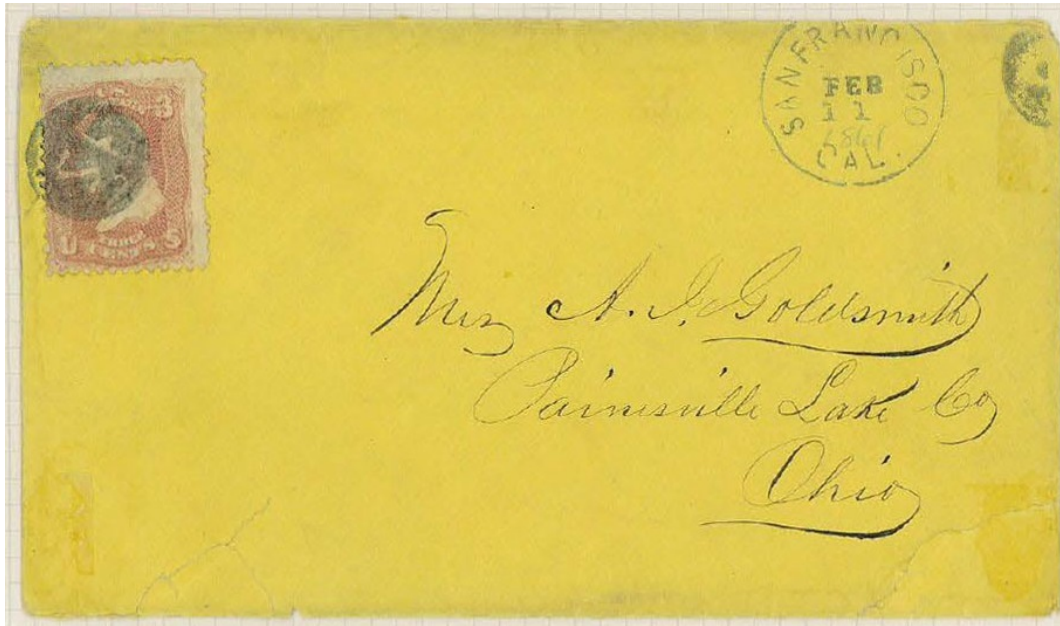 SAN FRANCISCO
FEB
11
CAL.
3
U THREE S
CENTS
Mrs A. J. Goldsmith
Painesville Lake Co
Ohio